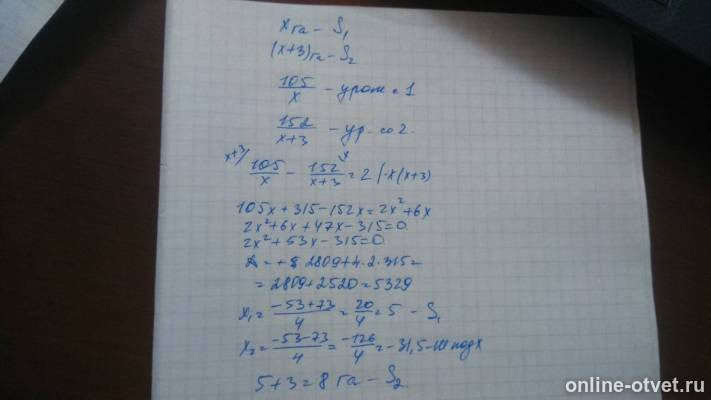 x га – S₁
(x+3) га – S₂
105/x – урож с 1
152/(x+3) – ур. со 2.
x+3/ 105/x – 152/(x+3) /x = 2 | · x(x+3)
105x+315–152x=2x²+6x
2x²+6x+47x–315=0
2x²+53x–315=0
2809+4·2·315=
=2809+2520=5329
x₁=(–53+73)/4=20/4=5 – S₁
x₂=(–53–73)/4=–126/4=–31,5–не подх
5+3=8 га – S₂
online-otvet.ru